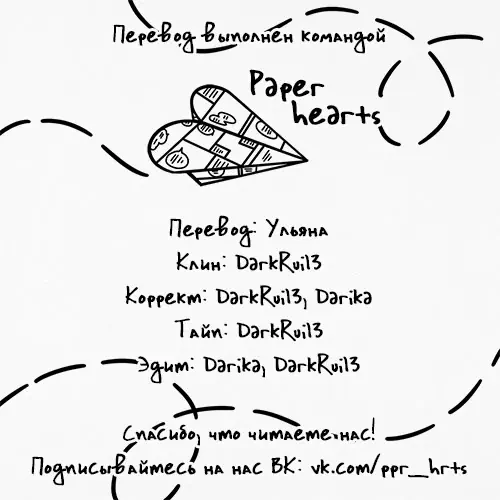 Перевод выполнен командой
Paper
hearts
Перевод: Ульяна
Клин: DarkRui13
Коррект: DarkRui13, Darika
Тайп: DarkRui13
Эдит: Darika, DarkRui13
Спасибо, что читаете нас!
Подписывайтесь на нас ВК: vk.com/ppr_hrts